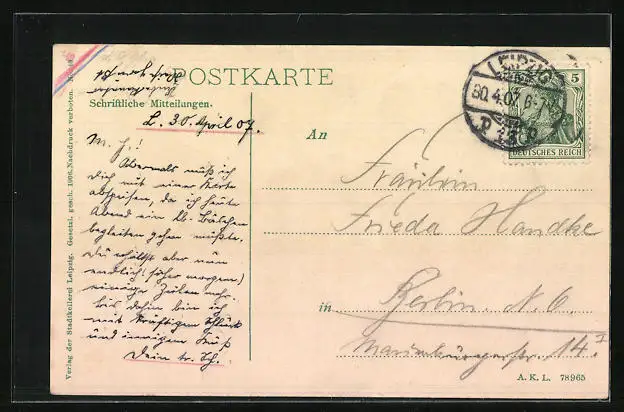 POSTKARTE
Schriftliche Mitteilungen.
L. 30. April 07.
M. H.!
Abermals muß ich
Dich mit einer Karte
abspeisen, da ich heute
Abend ein
begleiten gehen müßte.
Du erhältst aber nun
endlich (sicher morgen)
einige Zeilen mehr.
Bis dahin bin ich
mit kräftigem
und innigem Gruß
Dein tr.
An
Fräulein
Frieda Handke
in Berlin. N. 6.
Marienburgerstr. 14. I
LEIPZIG
30.4.07. 6-7
5
DEUTSCHES REICH
A. K. L. 78965
Verlag der Stadtkellerei Leipzig. Gesetzl. gesch. 1906. Nachdruck verboten.